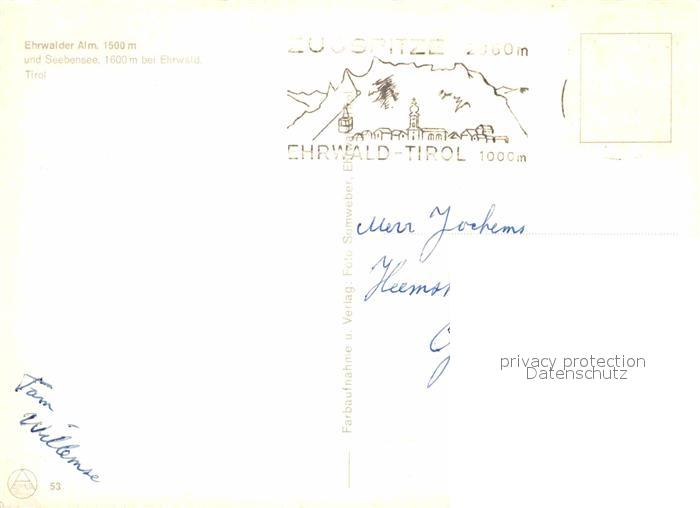 Ehrwalder Alm, 1500 m
und Seebensee, 1600 m bei Ehrwald,
Tirol
ZUGSPITZE 2960m
EHRWALD-TIROL 1000m
Farbaufnahme u. Verlag: Foto Somweber,
Jochems
Heems
privacy protection
Datenschutz
Fam
Willemse
53